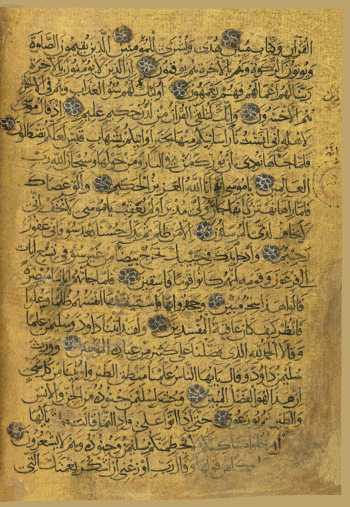 القرآن وكتاب مبين هدى وبشرى للمؤمنين الذين يقيمون الصلوة
ويؤتون الزكوة وهم بالآخرة هم يوقنون إن الذين لا يؤمنون بالآخرة
زينا لهم أعمالهم فهم يعمهون أولئك الذين لهم سوء العذاب وهم في الآخرة
هم الأخسرون وإنك لتلقى القرآن من لدن حكيم عليم إذ قال موسى
لأهله إني آنست نارا سآتيكم منها بخبر أو آتيكم بشهاب قبس لعلكم تصطلون
فلما جاءها نودي أن بورك من في النار ومن حولها وسبحان الله رب
العالمين يا موسى إنه أنا الله العزيز الحكيم وألق عصاك
فلما رآها تهتز كأنها جان ولى مدبرا ولم يعقب يا موسى لا تخف إني
لا يخاف لدي المرسلون إلا من ظلم ثم بدل حسنا بعد سوء فإني غفور
رحيم وأدخل يدك في جيبك تخرج بيضاء من غير سوء في تسع آيات
إلى فرعون وقومه إنهم كانوا قوما فاسقين فلما جاءتهم آياتنا مبصرة
قالوا هذا سحر مبين وجحدوا بها واستيقنتها أنفسهم ظلما وعلوا
فانظر كيف كان عاقبة المفسدين ولقد آتينا داود وسليمن علما
وقالا الحمد لله الذي فضلنا على كثير من عباده المؤمنين وورث
سليمن داود وقال يا أيها الناس علمنا منطق الطير وأوتينا من كل شيء
إن هذا لهو الفضل المبين وحشر لسليمن جنوده من الجن والإنس
والطير فهم يوزعون حتى إذا أتوا على واد النمل قالت يا أيها
ادخلوا مساكنكم لا يحطمنكم سليمن وجنوده وهم لا يشعرون
من قولها وقال رب أوزعني أن أشكر نعمتك التي